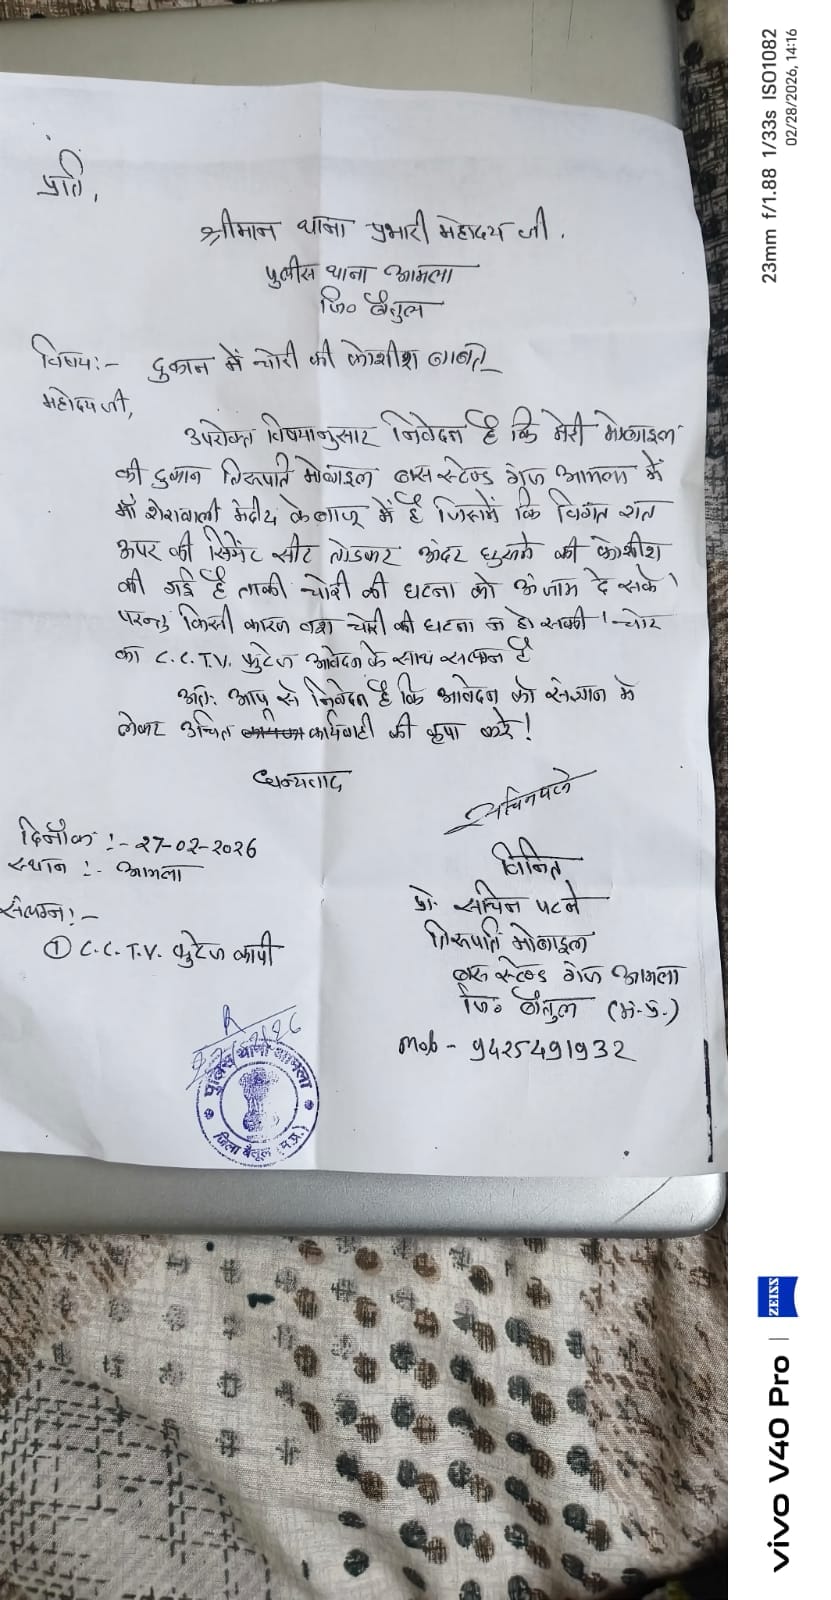 प्रति,
श्रीमान थाना प्रभारी महोदय जी.
पुलीस थाना आमला
जि० बैतुल
विषय:- दुकान में चोरी की कोशीश बाबत्
महोदय जी,
उपरोक्त विषयानुसार निवेदन है कि मेरी मोबाइल
की दुकान तिरूपति मोबाइल बस स्टेण्ड गेज आमला में
माँ शेरावाली मेडीय के बाजू में है जिसमें कि विगत रात
ऊपर की सिमेंट सीट तोडकर अंदर घुसने की कोशीश
की गई है ताकी चोरी की घटना को अंजाम दे सके।
परन्तु किसी कारण वश चोरी की घटना न हो सकी। चोर
का C.C.T.V. फुटेज आवेदन के साथ सलग्न है
अतः आप से निवेदन है कि आवेदन को संज्ञान मे
लेकर उचित कार्यवाही की कृपा करे!
धन्यवाद
सचिन पटने
दिनाँक :- 27-02-2026
स्थान :- आमला
विनित
प्रो. सचिन पटने
संलग्न:-
तिरूपति मोबाइल
① C.C.T.V. फुटेज कापी
बस स्टेण्ड गेज आमला
जि० बैतुल (म.प्र.)
Mob - 9425491932
पुलिस थाना आमला
जिला बैतूल (म.प्र.)
23mm f/1.88 1/33s ISO1082
02/28/2026, 14:16
vivo V40 Pro | ZEISS